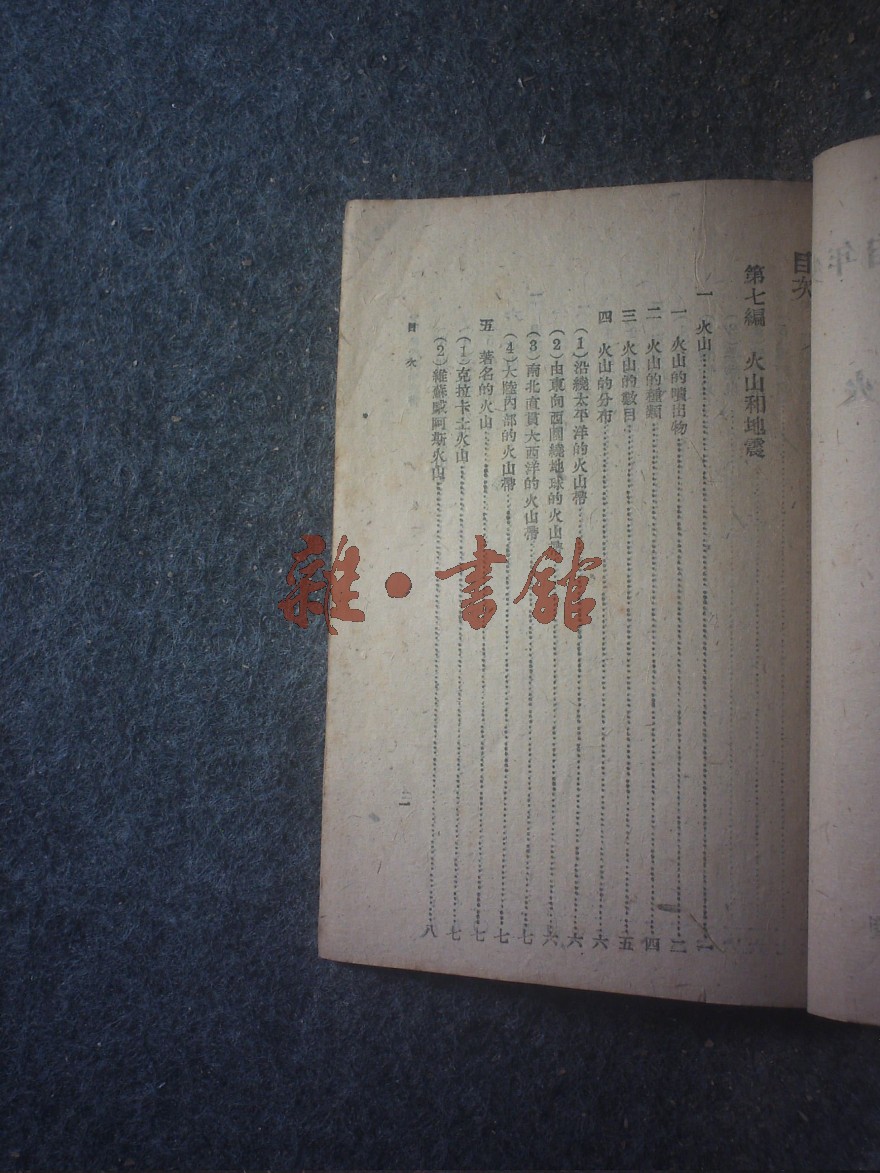 目次
第七編　火山和地震
一　火山……二
一　火山的噴出物……二
二　火山的種類……四
三　火山的數目……五
四　火山的分布……六
（1）沿繞太平洋的火山帶……六
（2）由東向西圍繞地球的火山帶……六
（3）南北直貫大西洋的火山帶……七
（4）大陸內部的火山帶……七
五　著名的火山……七
（1）克拉卡土火山……七
（2）維蘇威阿斯火山……八
目次
一
雜·書館